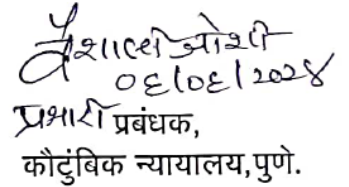 वैशाली जोशी
०६/०६/२०२४
प्रभारी प्रबंधक,
कौटुंबिक न्यायालय,पुणे.